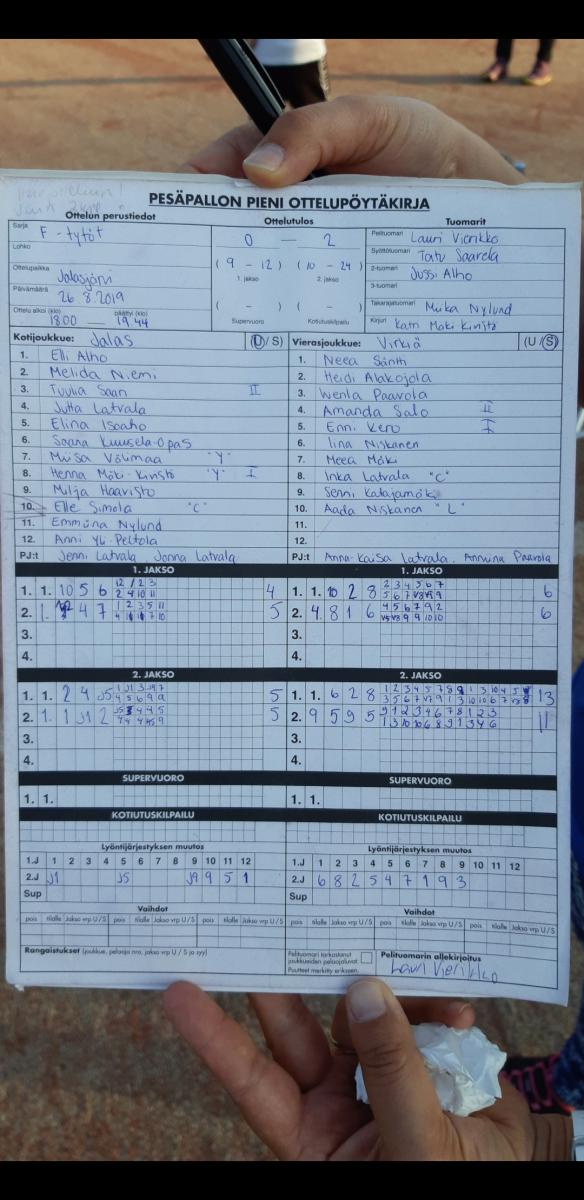 PESÄPALLON PIENI OTTELUPÖYTÄKIRJA
Ottelun perustiedot
Ottelutulos
Tuomarit
Sarja F-tytöt
Lohko
Ottelupaikka Jalasjärvi
Päivämäärä 26.8.2019
Ottelu alkoi (klo) 18.00 päättyi (klo) 19.44
0 — 2
(9 - 12) (10 - 24)
1. jakso 2. jakso
( - ) ( - )
Supervuoro Kotiutuskilpailu
Pelituomari Lauri Vierikko
Syöttötuomari Tatu Saarela
2-tuomari Jussi Alho
3-tuomari
Takarajatuomari Miika Nylund
Kirjuri Katri Mäki-Kiristö
Kotijoukkue: Jalas (U / S)
1. Elli Alho
2. Melida Niemi
3. Tuulia Saari II
4. Jutta Latvala
5. Elina Isoaho
6. Saana Kuusela-Opas
7. Miisa Välimaa "Y"
8. Henna Mäki-Kiristö "Y" I
9. Milja Haavisto
10. Elle Simola "C"
11. Emmiina Nylund
12. Anni Yli-Peltola
PJ:t Jenni Latvala, Jonna Latvala
Vierasjoukkue: Virkiä (U / S)
1. Neea Säntti
2. Heidi Alakojola
3. Wenla Paavola
4. Amanda Salo II
5. Enni Kero I
6. Iina Niskanen
7. Meea Mäki
8. Inka Latvala "C"
9. Senni Katajamäki
10. Aada Niskanen "L"
11.
12.
PJ:t Anna-Kaisa Latvala, Anniina Paavola
1. JAKSO
1. 1. 10 5 6 4
2. 1. 4 7 5
3.
4.
1. JAKSO
1. 1. 10 2 8 6
2. 4. 8 1 6 6
3.
4.
2. JAKSO
1. 1. 2 4 J5 5
2. 1. 1 J1 2 5
3.
4.
2. JAKSO
1. 1. 6 2 8 13
2. 9 5 9 5 11
3.
4.
SUPERVUORO
1. 1.
KOTIUTUSKILPAILU
SUPERVUORO
1. 1.
KOTIUTUSKILPAILU
Lyöntijärjestyksen muutos
1.J 1 2 3 4 5 6 7 8 9 10 11 12
2.J J1 J5 J9 9 5 1
Sup
Lyöntijärjestyksen muutos
1.J 1 2 3 4 5 6 7 8 9 10 11 12
2.J 6 8 2 5 4 7 1 9 3
Sup
Vaihdot
pois tilalle Jakso vrp U / S pois tilalle Jakso vrp U / S pois tilalle Jakso vrp U / S
Vaihdot
pois tilalle Jakso vrp U / S pois tilalle Jakso vrp U / S pois tilalle Jakso vrp U / S
Rangaistukset (joukkue, pelaaja nro, jakso vrp U / S ja syy)
Pelituomari tarkastanut
joukkueiden pelaajaluvat
Puutteet merkitty erikseen.
Pelituomarin allekirjoitus
Lauri Vierikko